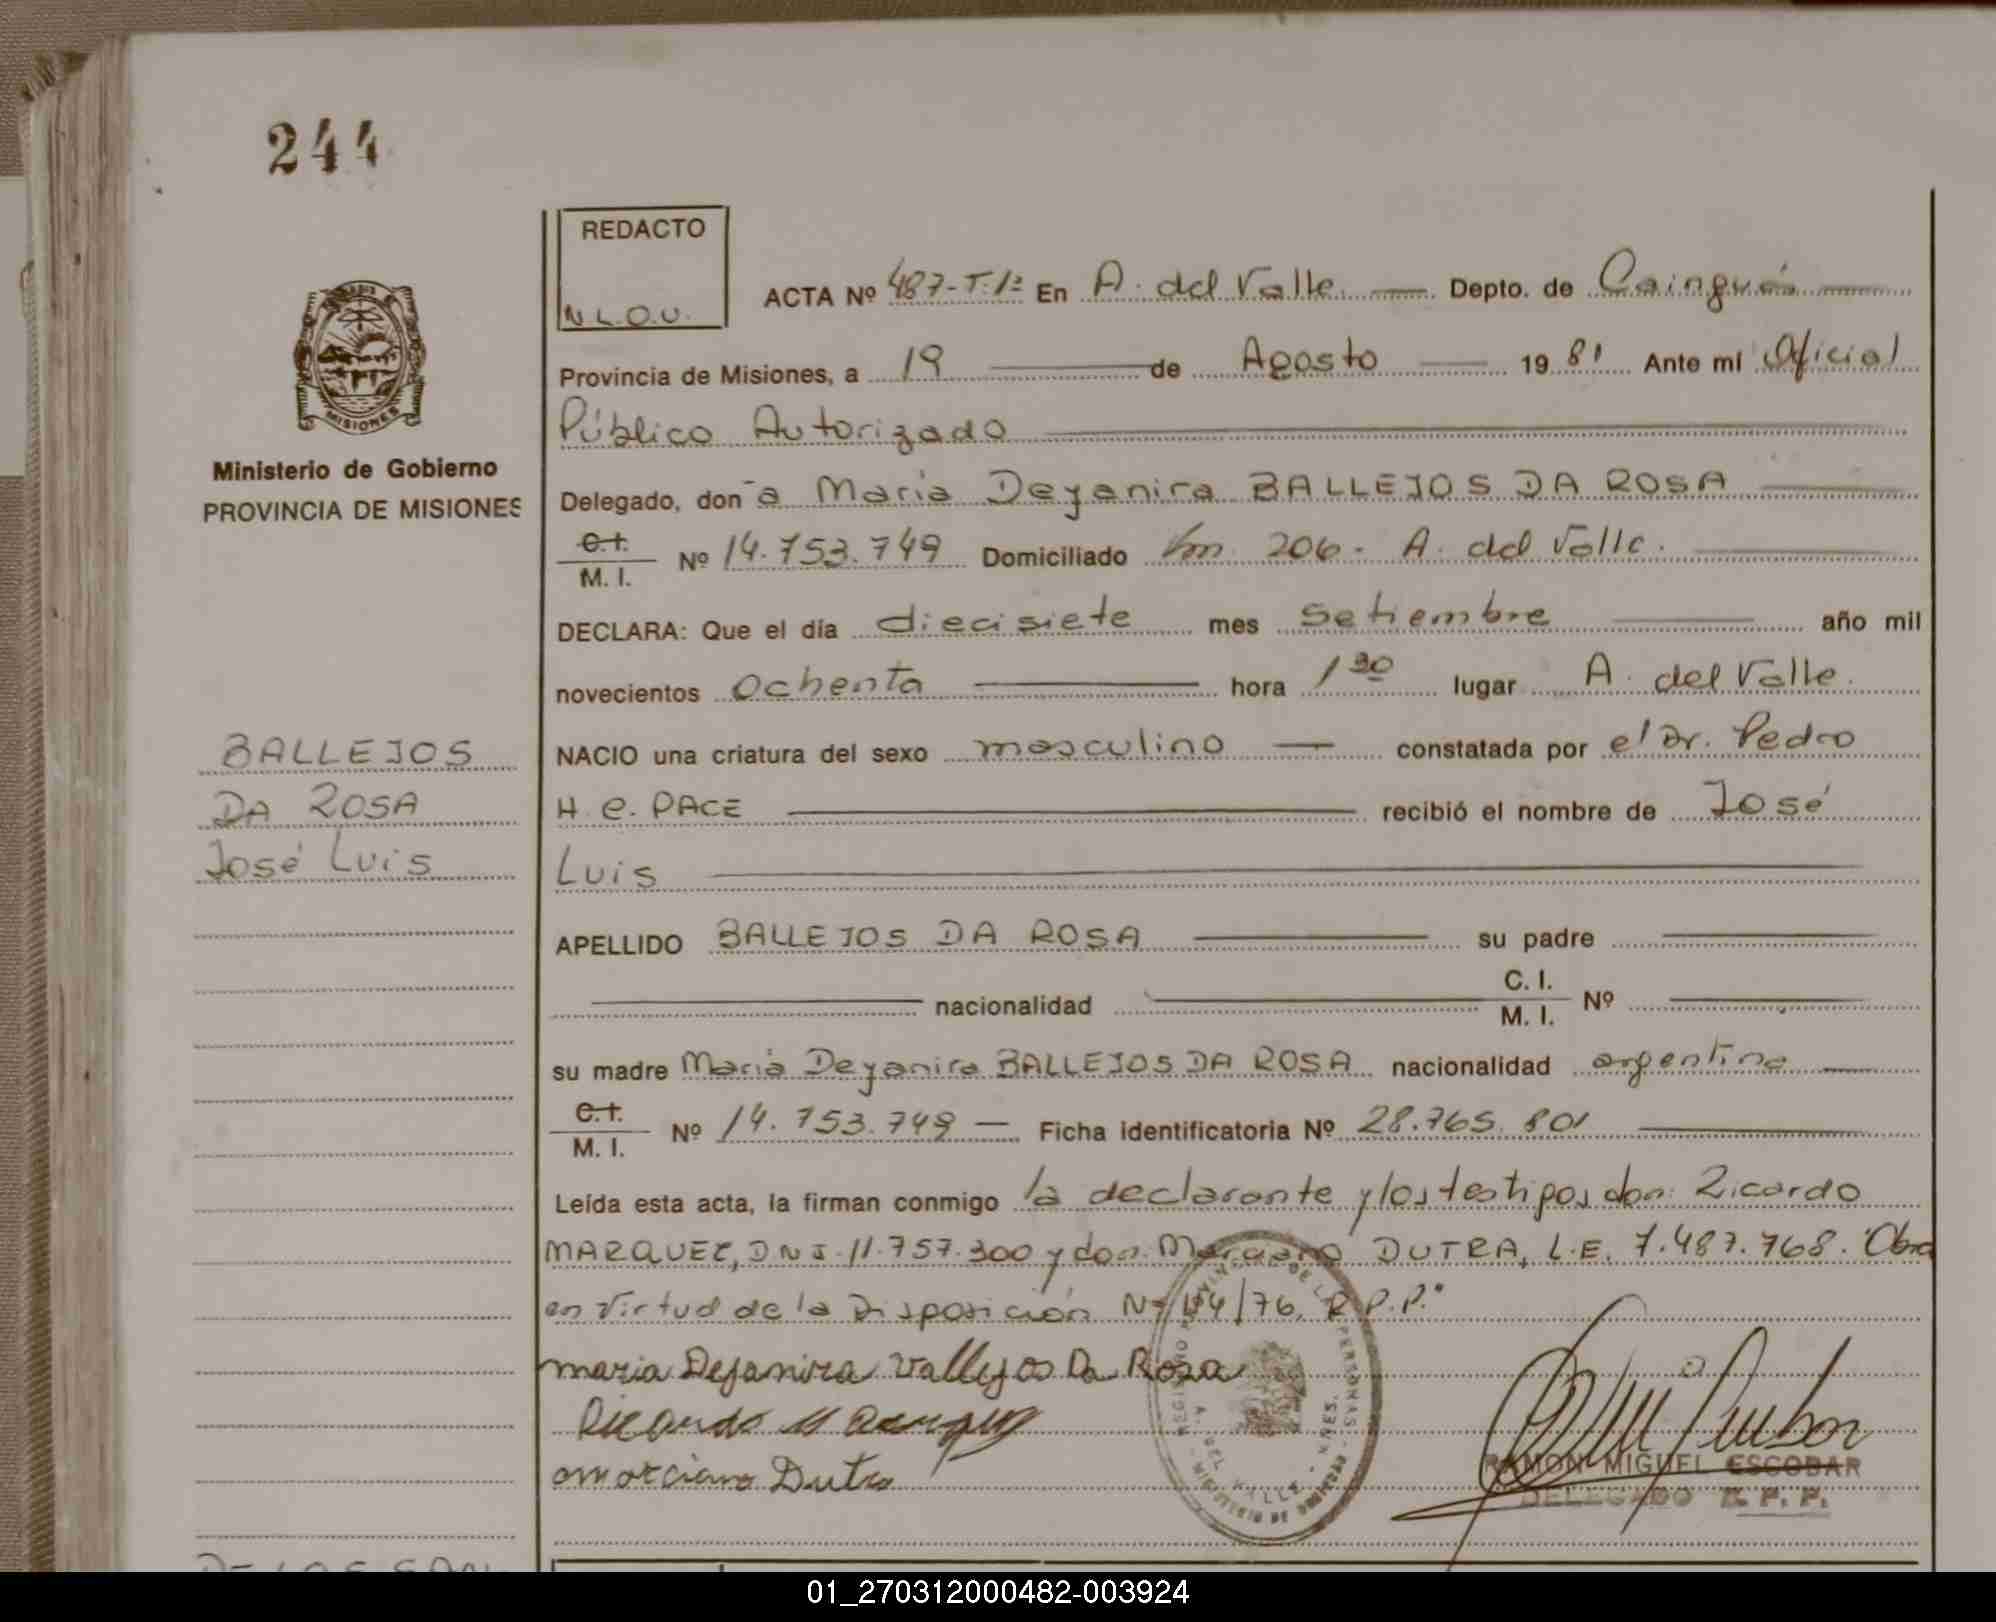 244
REDACTO
N L.O.U.
ACTA Nº 487-T.1º En A. del Valle. Depto. de Cainguás
Provincia de Misiones, a 19 de Agosto 1981 Ante mí Oficial
Público Autorizado
MISIONES
Ministerio de Gobierno
PROVINCIA DE MISIONES
Delegado, don-a Maria Deyanira BALLEJOS DA ROSA
C.I.
M. I. Nº 14.753.749 Domiciliado km. 206. A. del Valle.
DECLARA: Que el día diecisiete mes setiembre año mil
novecientos ochenta hora 1 30 lugar A. del Valle.
BALLEJOS
DA ROSA
José Luis
NACIO una criatura del sexo masculino constatada por el Dr. Pedro
H. C. PACE recibió el nombre de José
Luis
APELLIDO BALLEJOS DA ROSA su padre
nacionalidad C. I.
M. I. Nº
su madre Maria Deyanira BALLEJOS DA ROSA nacionalidad argentina
C.I.
M. I. Nº 14.753.749 Ficha identificatoria Nº 28.765.801
Leída esta acta, la firman conmigo la declarante y los testigos don: Ricardo
MARQUEZ, DNI. 11.757.300 y don. Marciano DUTRA, L.E. 7.487.768. "Obra
en virtud de la Disposición Nº 144/76, R.P.P."
maria Dejanira Vallejos Da Rosa
Ricardo Marquez
marciano Dutra
RAMON MIGUEL ESCOBAR
DELEGADO R. P. P.
01_270312000482-003924